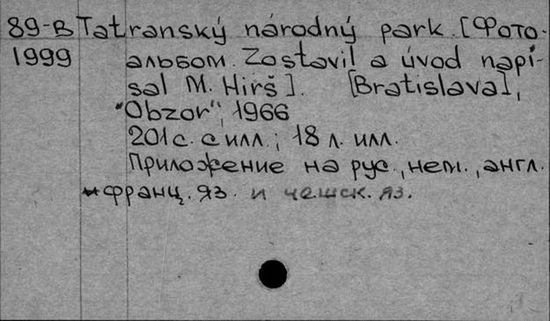 89-В Tatranský národný park. [Фото-
1999 альбом. Zostavil a úvod napí-
sal M. Hirš]. [Bratislava],
"Obzor", 1966
201 с. с илл.; 18 л. илл.
Приложение на рус., нем., англ.
франц. яз. и чешск. яз.